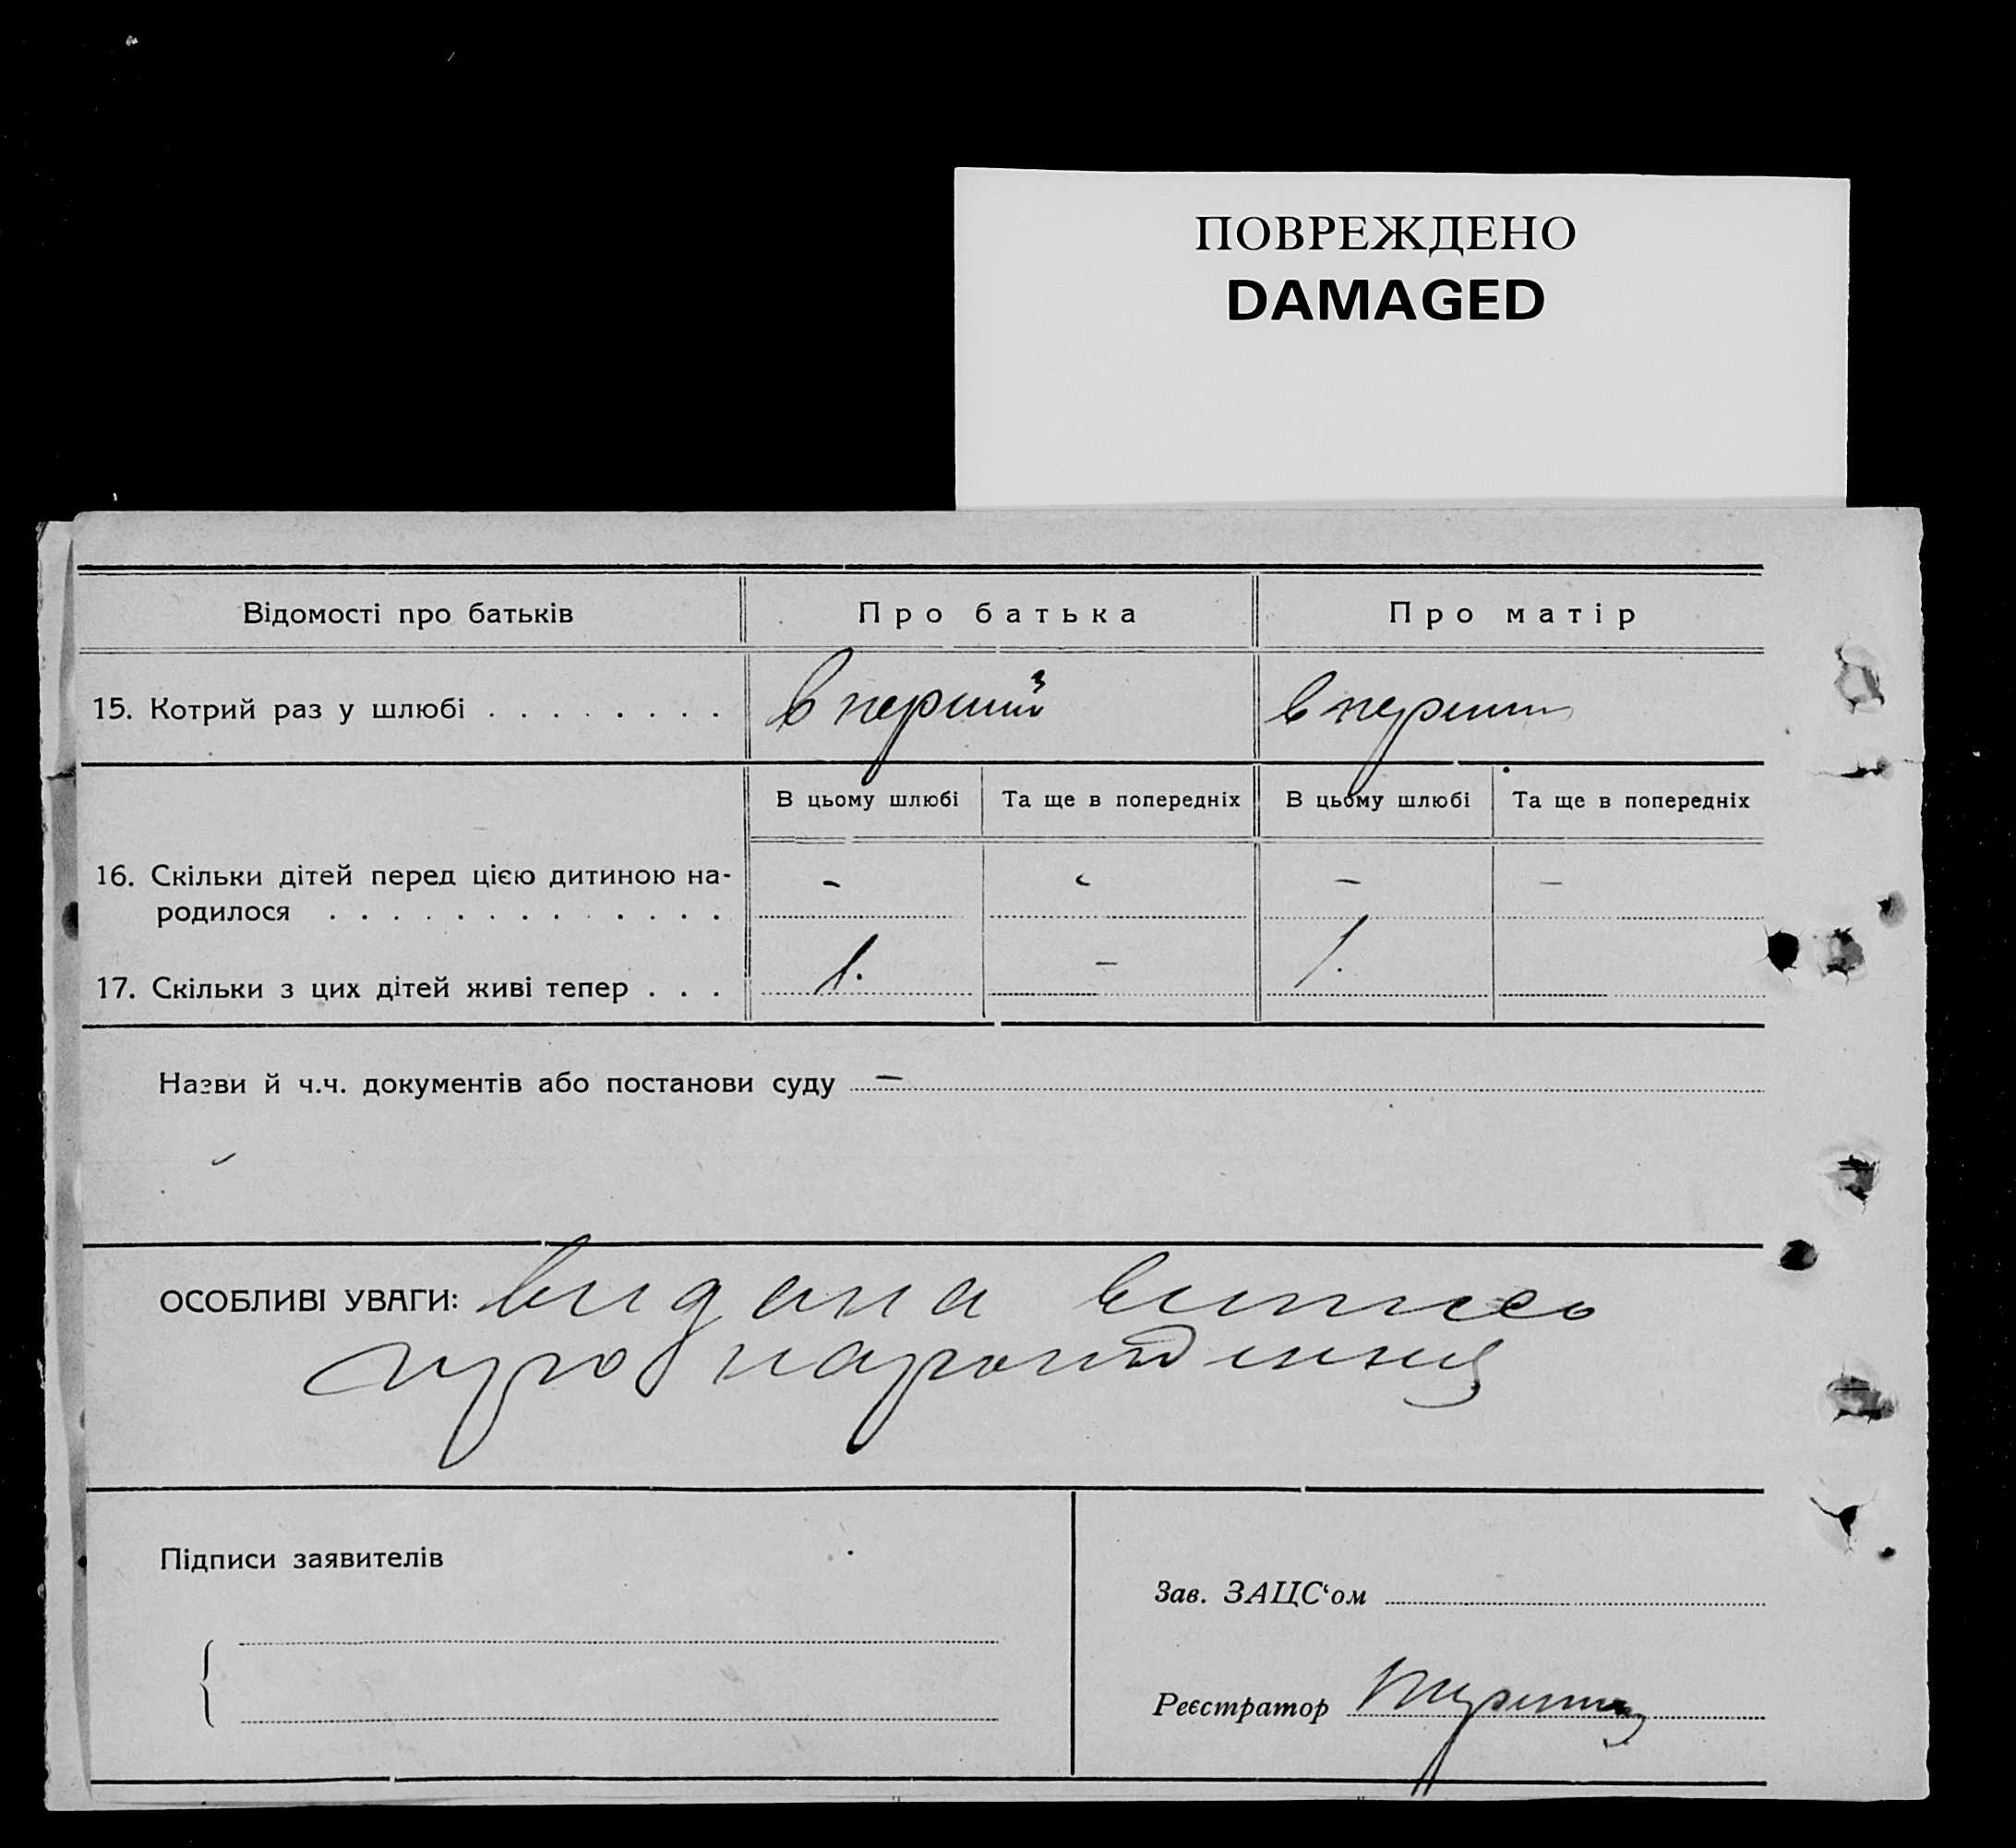 ПОВРЕЖДЕНО
DAMAGED
Відомості про батьків Про батька Про матір
15. Котрий раз у шлюбі . . . . . . . . в перший в перши
В цьому шлюбі Та ще в попередніх В цьому шлюбі Та ще в попередніх
16. Скільки дітей перед цією дитиною на- - - - -
родилося . . . . . . . . . . . . .
17. Скільки з цих дітей живі тепер . . . 1. - 1.
Назви й ч.ч. документів або постанови суду -
ОСОБЛИВІ УВАГИ: видана випись
про народження
Підписи заявителів
Зав. ЗАЦС‘ом
Реєстратор